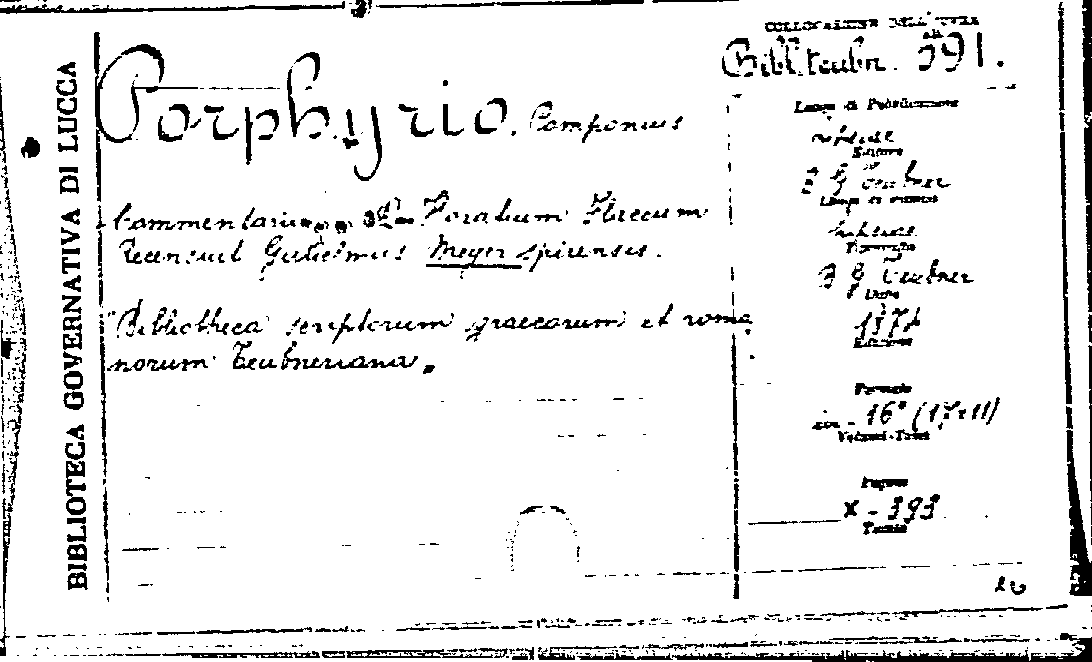 BIBLIOTECA GOVERNATIVA DI LUCCA
Porphyrio. Pomponius
Commentarii in Q. Horatium Flaccum
Recensuit Gulielmus Meyer spirensis.
"Bibliotheca scriptorum graecorum et roma
norum Teubneriana"
COLLOCAZIONE DELL'OPERA
Bibl. Teubn. 391.
Luogo di Pubblicazione
Lipsiae
Editore
B G Teubner
Luogo di stampa
Lipsiae
B G Teubner
Data
Edizione
Formato
in - 16° (17x11)
Volumi-Tomi
Pagine
X - 393
Tavole